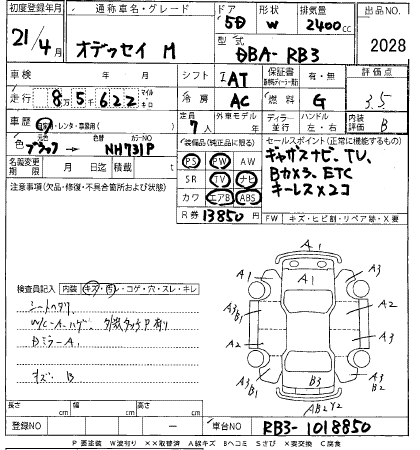 初度登録年月 通称車名・グレード ドア 形状 排気量 出品NO
21/4月 オデッセイ M 5D W 2400cc 2028
型式 DBA-RB3
車検 年 月 シフト IAT 保証書 有・無 評価点
走行 8万5千622 マイル キロ 冷房 AC 燃料 G 3.5
車歴 自家用・レンタ・事業用( ) 定員 7人 外車モデル ディーラー 並行 ハンドル 左・右 内装評価 B
色 ブラック 色替 カラーNO NH731P
装備品(純正品に限る) セールスポイント(正常に機能するもの)
名義変更期限 月 日 積載 t
PS PW AW ギャザスナビ、TV、
注意事項(欠品・修復・不具合箇所および状態) SR TV ナビ Bカメラ、ETC
カワ エアB ABS キーレス×2コ
R券 13850円 FW キズ・ヒビ割・リペア跡・X要
検査員記入 内装 キズ・汚・コゲ・穴・スレ・キレ
シートヘタリ
ドミラーA1
キズ・B
A1
A1
A1
A3
A3
B1
A2
A2
A3
A3
A3
B1
B3
AB2 Y2
長さ cm 幅 cm 高さ cm
登録NO 車台NO RB3-1018850
P要塗装 W波有り ××取替済 A線キズ Bヘコミ Sさび ×要交換 C腐食